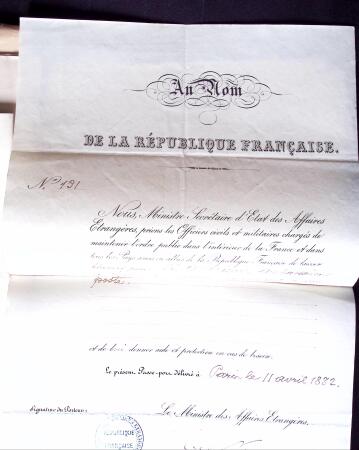 Au Nom
DE LA RÉPUBLIQUE FRANÇAISE.
N.º 191
Nous, Ministre Secrétaire d'Etat des Affaires
Etrangères, prions les Officiers civils et militaires chargés de
maintenir l'ordre public dans l'intérieur de la France et dans
tous les Pays amis ou alliés de la République Française de laisser
et de lui donner aide et protection en cas de besoin.
Le présent Passe-port délivré à Paris le 11 avril 1882.
Signature du Porteur:
Le Ministre des Affaires Etrangères,
RÉPUBLIQUE
FRANÇAISE